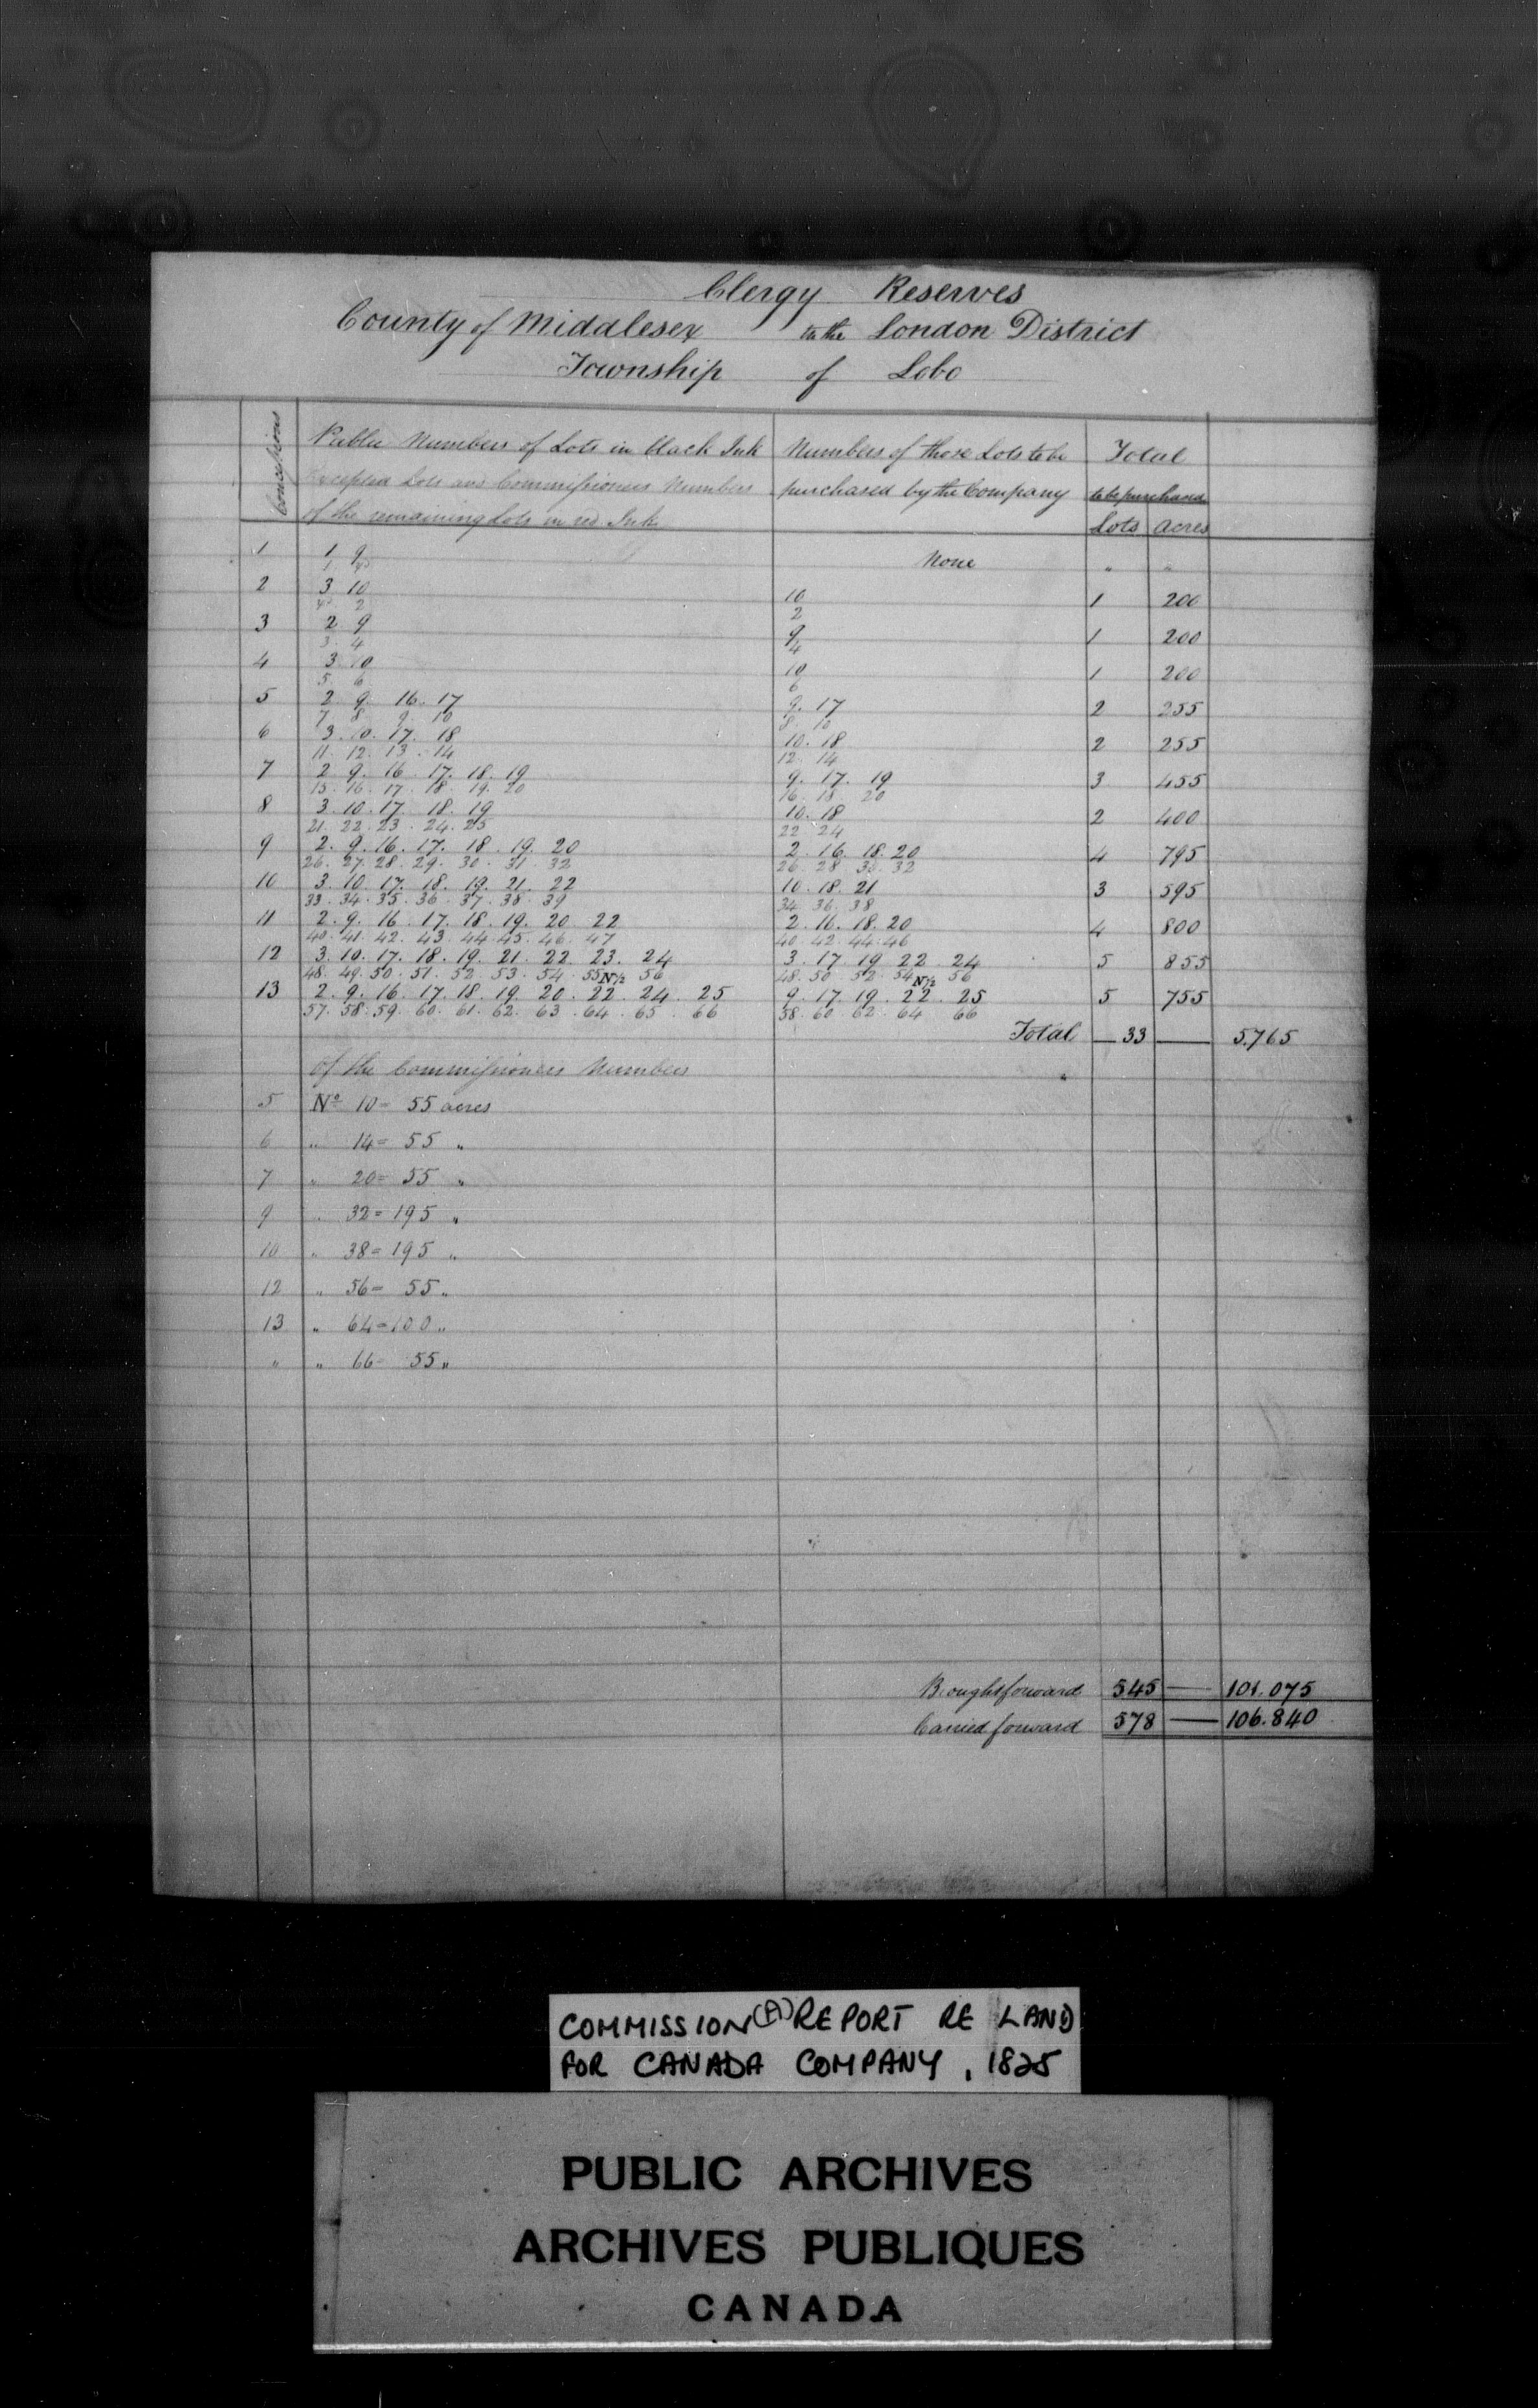 Clergy Reserves
County of Middlesex in the London District
Township of Lobo
Concessions
Public Numbers of Lots in black Ink
Excepted Lots and Commissioners Numbers
of the remaining Lots in red Ink
Numbers of those Lots to be
purchased by the Company
Total
to be purchased
Lots acres
1 1 9 None " "
1
2 3 10 10 1 200
2 2
3 2 9 9 1 200
3 4 4
4 3 10 10 1 200
5 6 6
5 2 9. 16. 17 9. 17 2 255
7 8 9 10 8 10
6 3. 10. 17. 18 10. 18 2 255
11. 12. 13. 14 12. 14
7 2 9. 16. 17. 18. 19 9. 17. 19 3 455
15. 16. 17. 18. 19. 20 16. 18. 20
8 3. 10. 17. 18. 19 10. 18 2 400
21. 22. 23. 24. 25 22 24
9 2. 9. 16. 17. 18. 19. 20 2. 16. 18. 20 4 795
26. 27. 28. 29. 30. 31. 32 26 28 30 32
10 3. 10. 17. 18. 19. 21. 22 10. 18. 21 3 595
33. 34. 35. 36. 37. 38. 39 34. 36. 38
11 2. 9. 16. 17. 18. 19. 20. 22 2. 16. 18. 20 4 800
40. 41. 42. 43. 44. 45. 46. 47 40. 42. 44. 46
12 3. 10. 17. 18. 19. 21. 22. 23. 24 3. 17. 19. 22. 24 5 855
48. 49. 50. 51. 52. 53. 54. 55 N½ 56 48. 50. 52. 54 N½ 56
13 2. 9. 16. 17. 18. 19. 20. 22. 24. 25 9. 17. 19. 22. 25 5 755
57. 58. 59. 60. 61. 62. 63. 64. 65. 66 58. 60. 62. 64. 66
Total 33 5.765
Of the Commissioners Numbers
5 No 10 = 55 acres
6 " 14 = 55 "
7 " 20 = 55 "
9 " 32 = 195 "
10 " 38 = 195 "
12 " 56 = 55 "
13 " 64 = 100 "
" " 66 = 55 "
Brought forward 545 101.075
Carried forward 578 106.840
COMMISSION (A) REPORT RE LAND
FOR CANADA COMPANY, 1825
PUBLIC ARCHIVES
ARCHIVES PUBLIQUES
CANADA